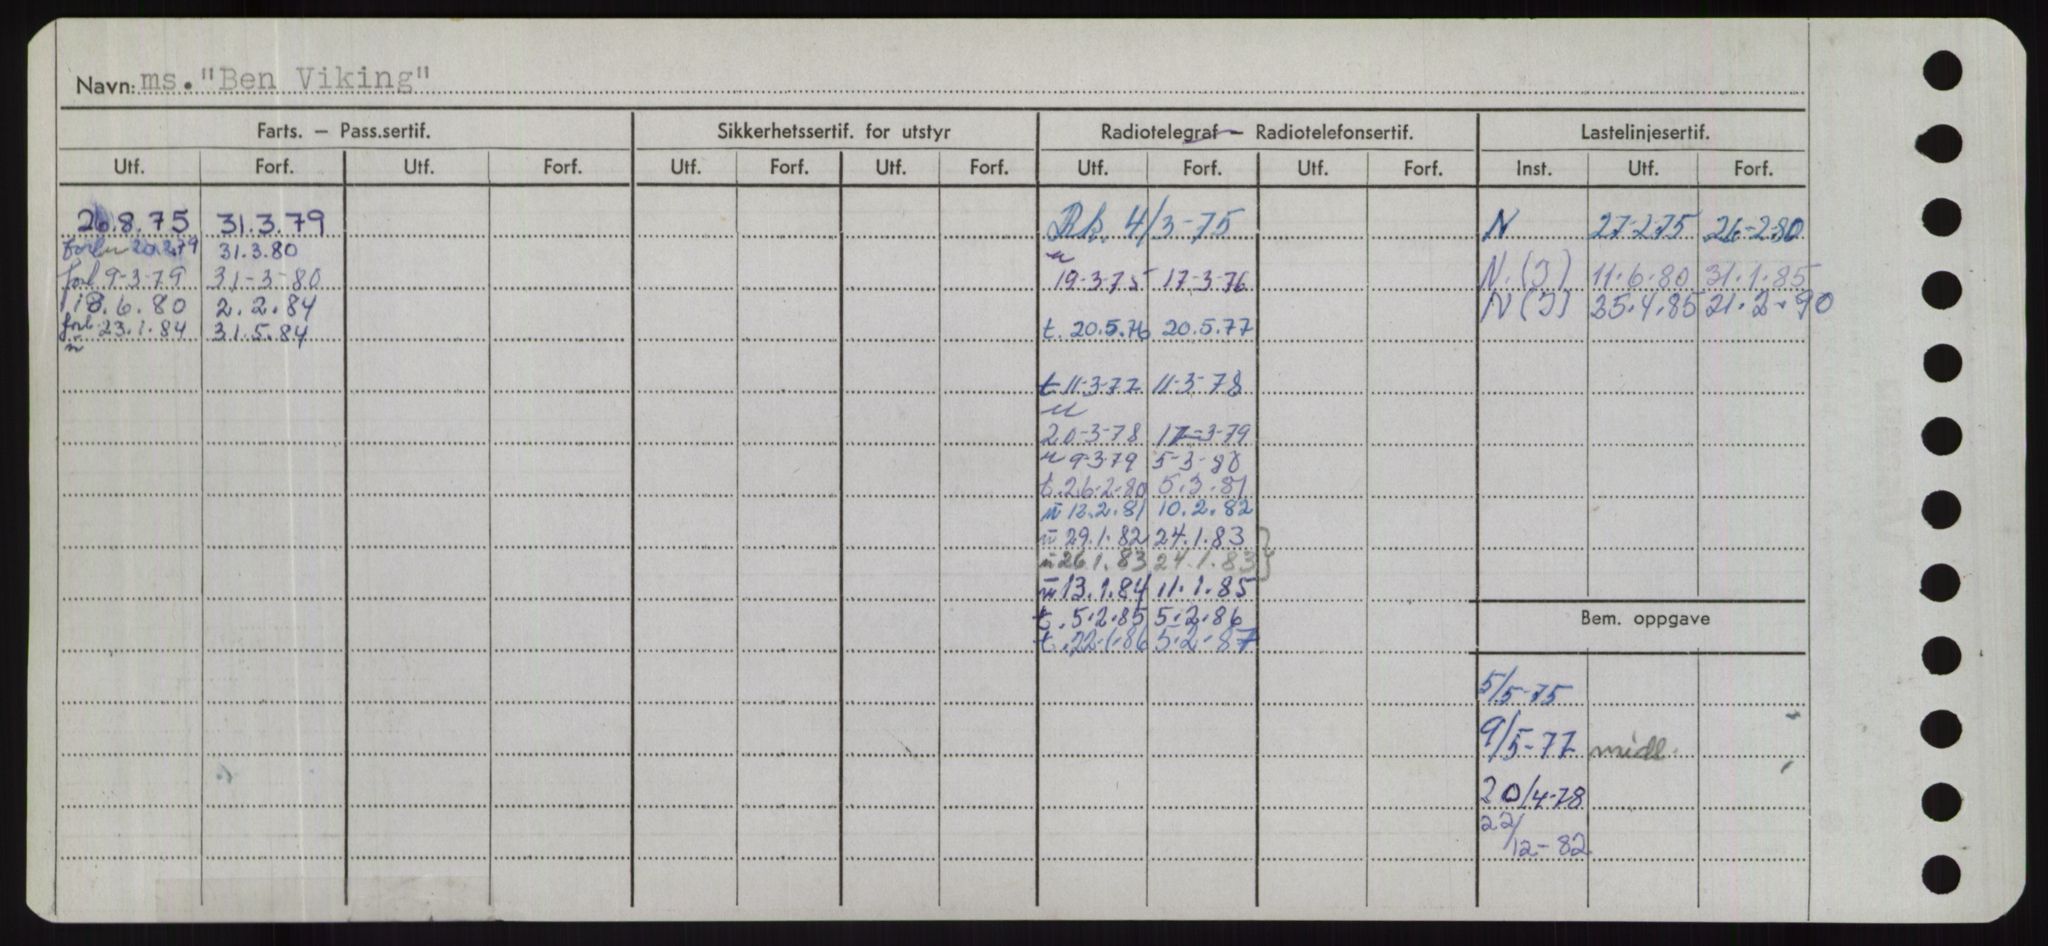 Navn: ms. "Ben Viking"
Farts. – Pass.sertif.
Sikkerhetssertif. for utstyr
Radiotelegraf – Radiotelefonsertif.
Lastelinjesertif.
Utf. Forf. Utf. Forf. Utf. Forf. Utf. Forf. Utf. Forf. Utf. Forf. Inst. Utf. Forf.
26.8.75 31.3.79
20.2.79 31.3.80
forl 9-3-79 31-3-80
18.6.80 2.2.84
forl. 23.1.84 31.5.84
n
Rk. 4/3-75
n
19-3-75 17-3-76
t. 20.5.76 20.5.77
t 11-3-77 11-3-78
n
20-3-78 17-3-79
n 9-3-79 5-3-80
t. 26.2.80 5.3.81
n 12.2.81 10.2.82
n 29.1.82 24.1.83
n 26.1.83 24.1.83 }
n 13.1.84 11.1.85
t. 5.2.85 5.2.86
t. 22.1.86 5.2.87
N 27-2-75 26-2-80
N.(J) 11.6.80 31.1.85
N(J) 25.4.85 21.2.90
Bem. oppgave
5/5-75
9/5-77 midl.
20/4-78
22/12-82